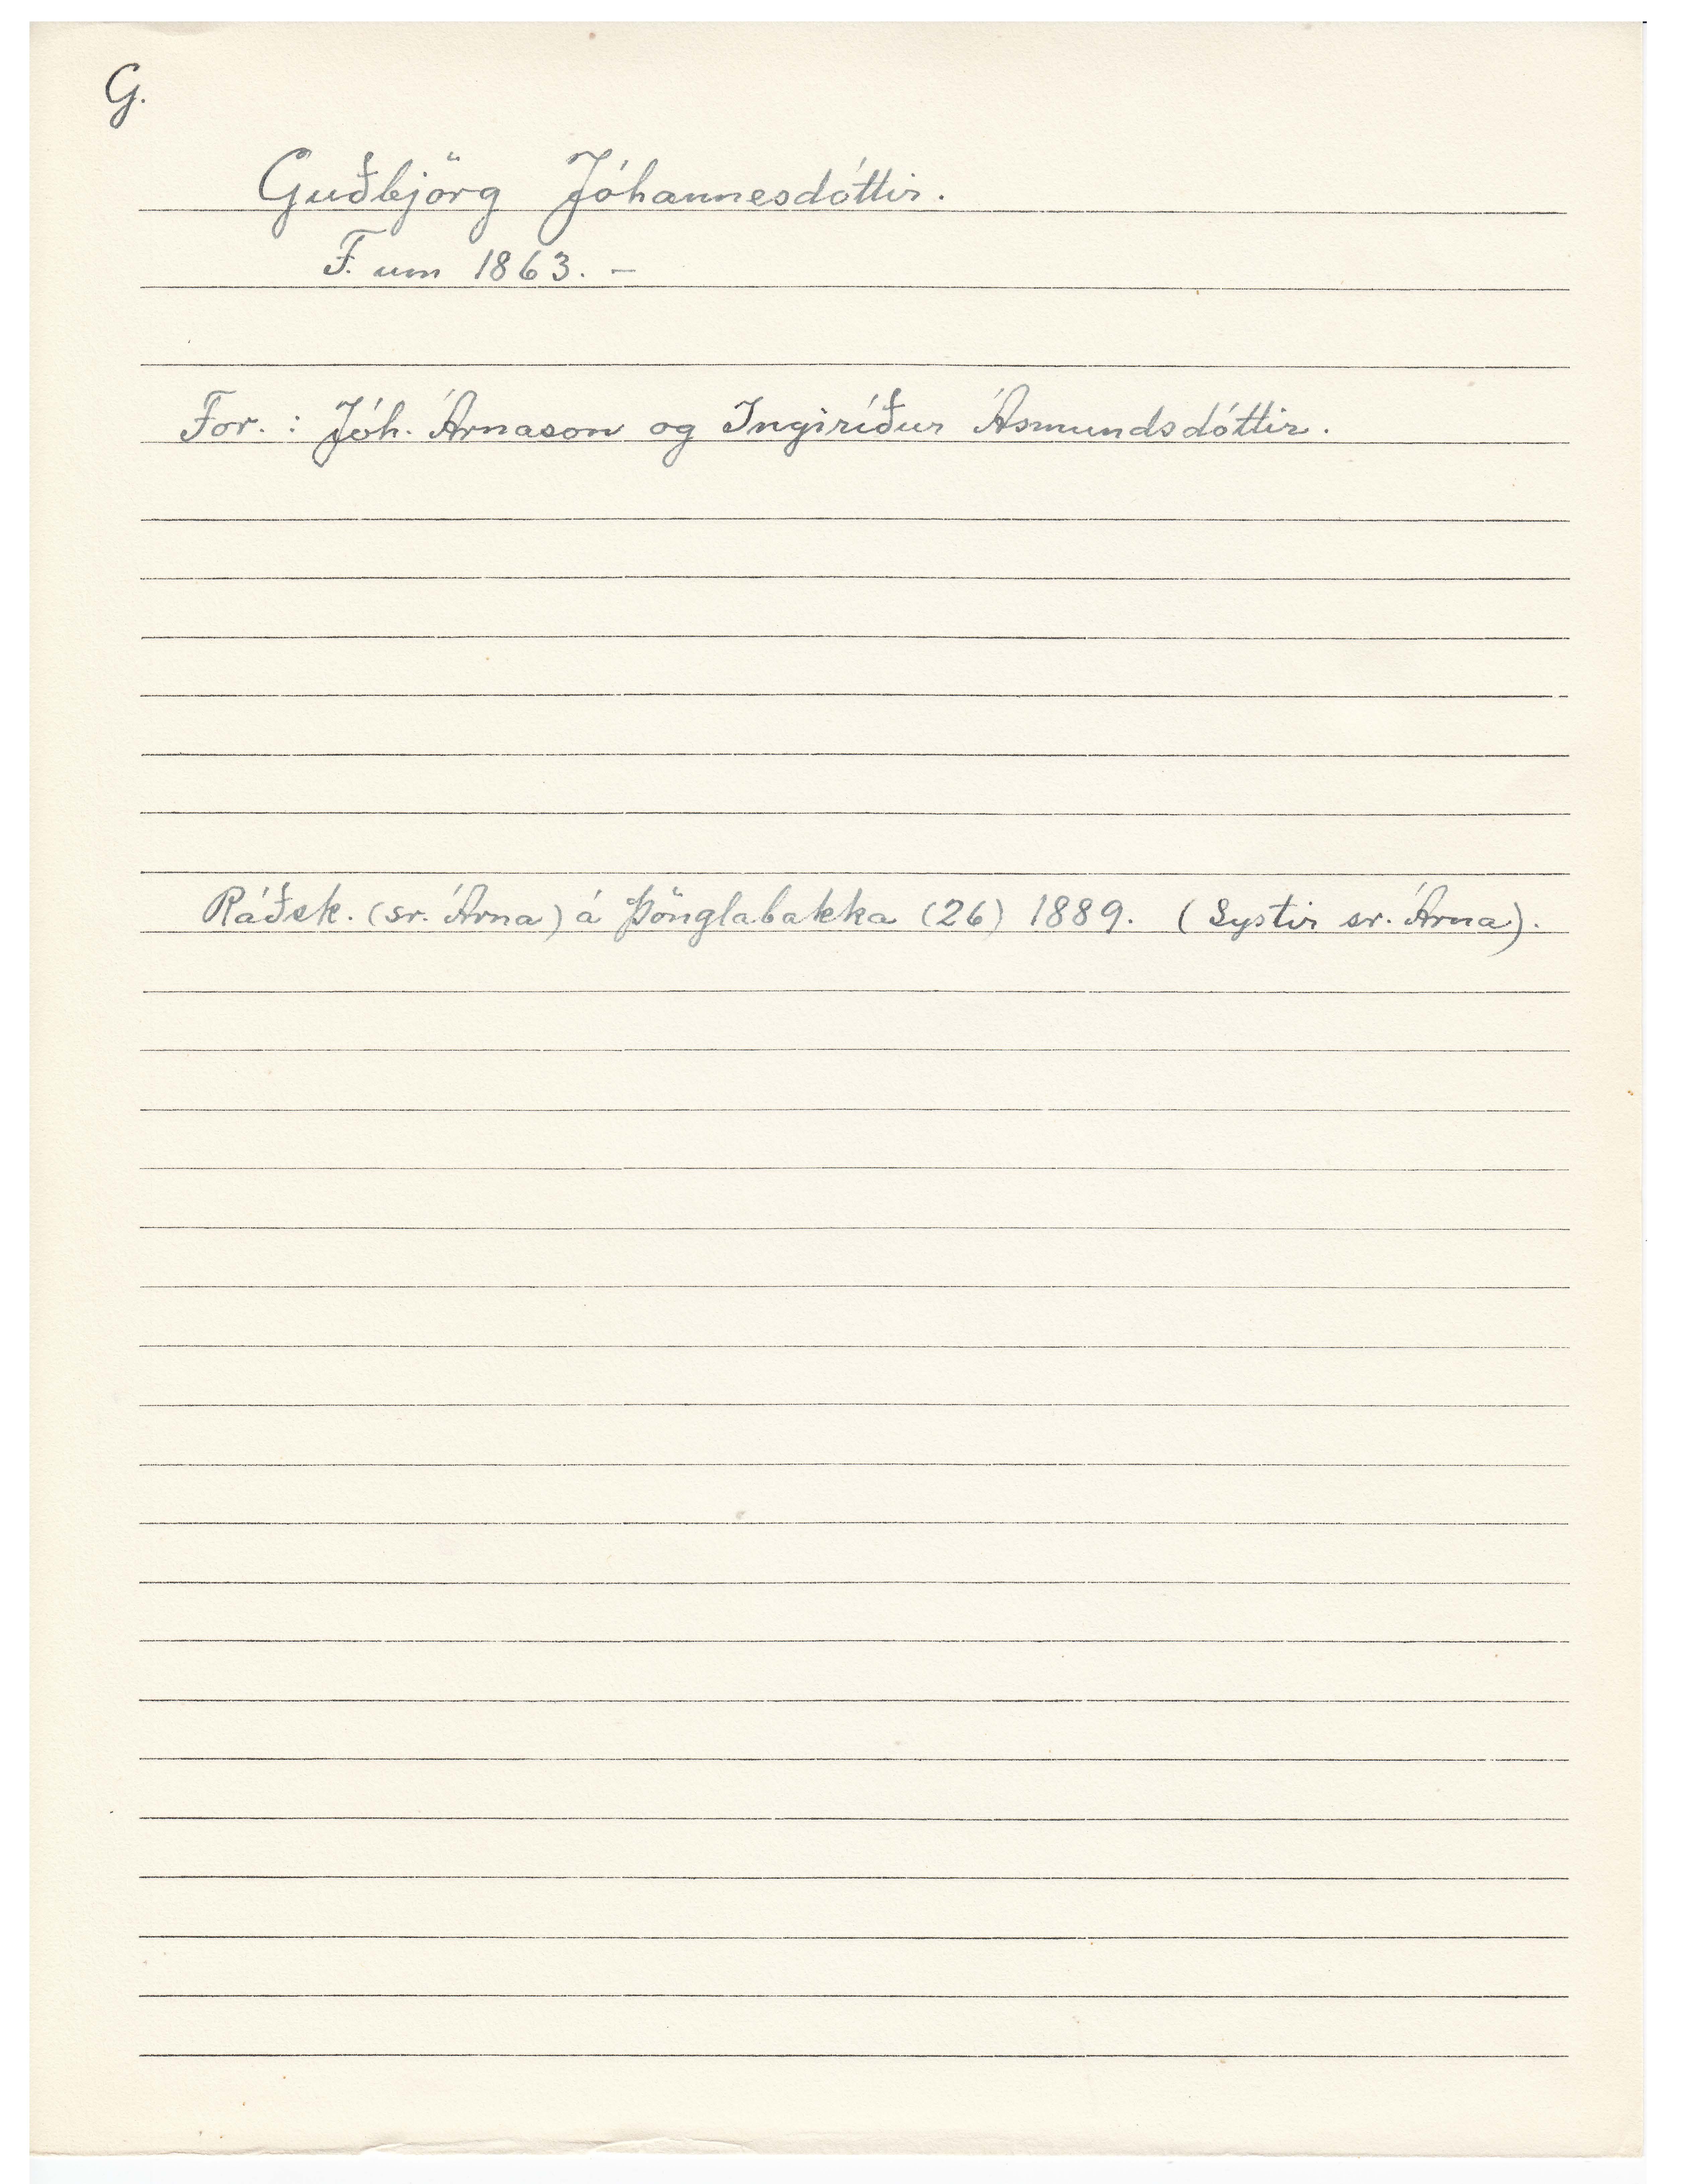 G.
Guðbjörg Jóhannesdóttir.
F. um 1863. –
For. : Jóh. Árnason og Ingiríður Ásmundsdóttir.
Ráðsk. (sr. Árna) á Þönglabakka (26) 1889. (Systir sr. Árna).